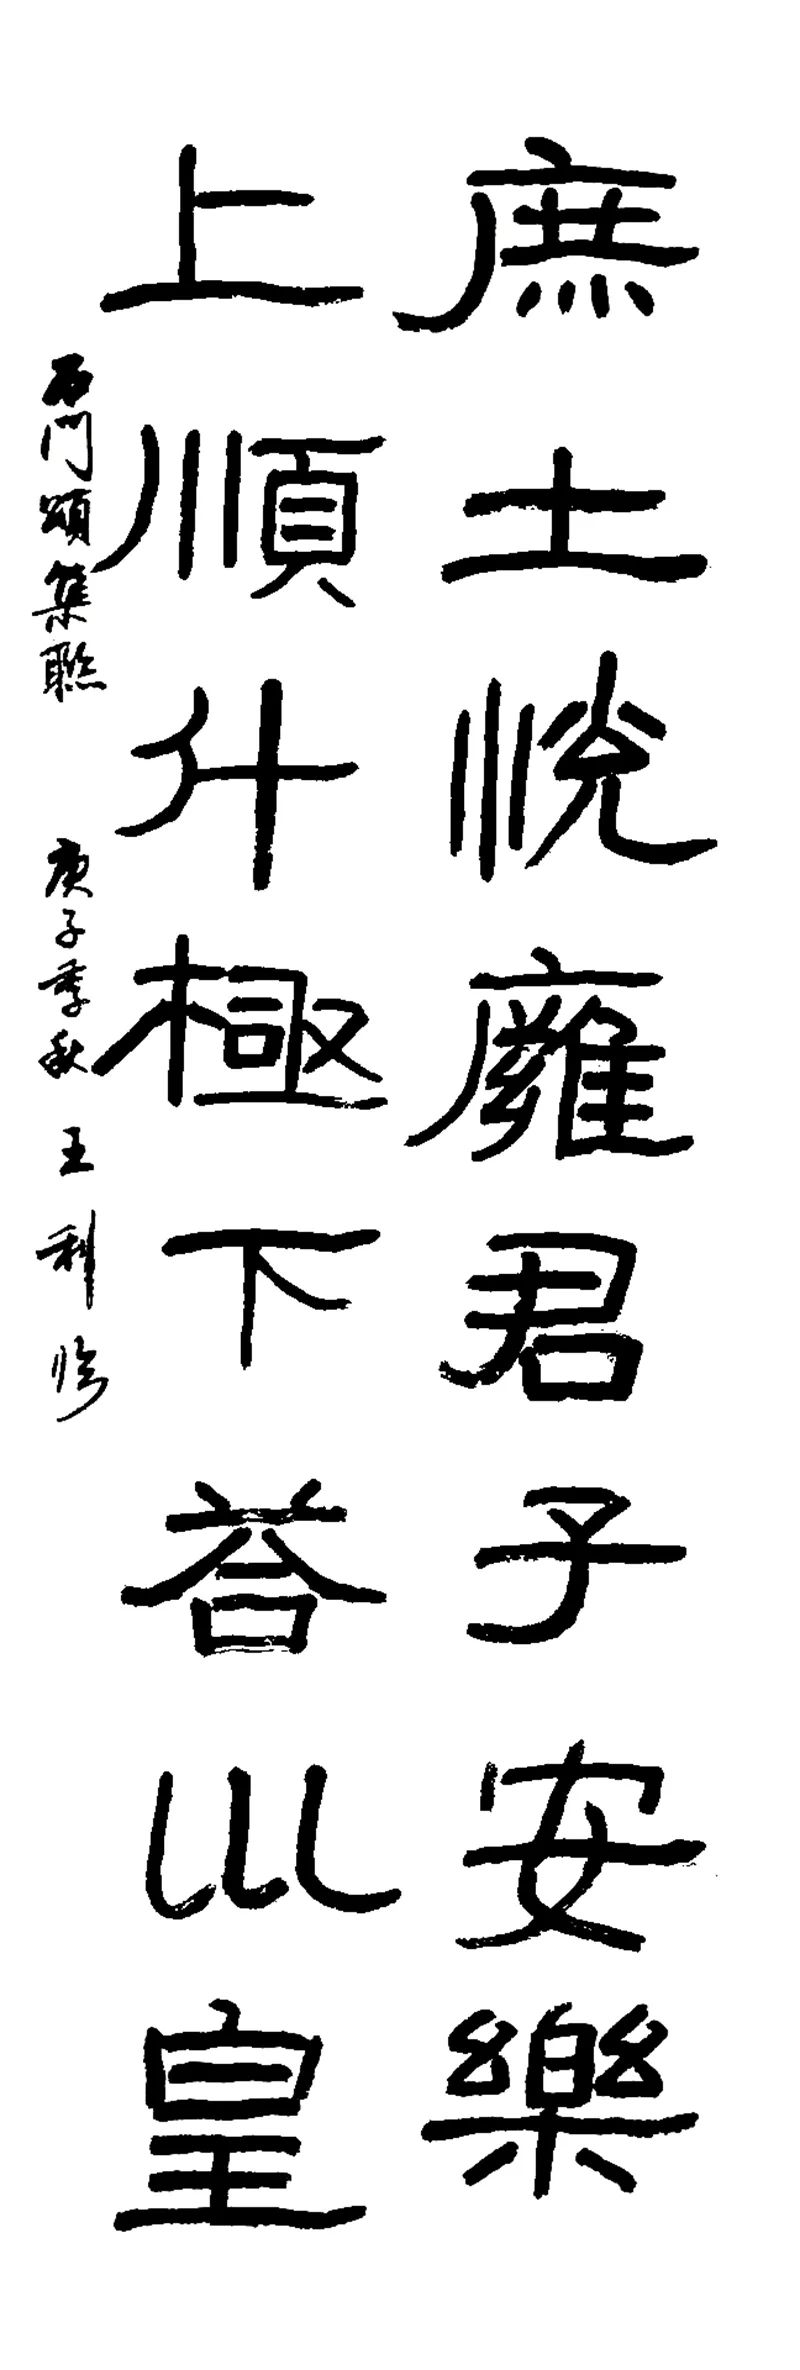 庶士悅廱君子安樂
上順斗極下荅巛皇
石門頌集聯 庚子季秋 王利臨